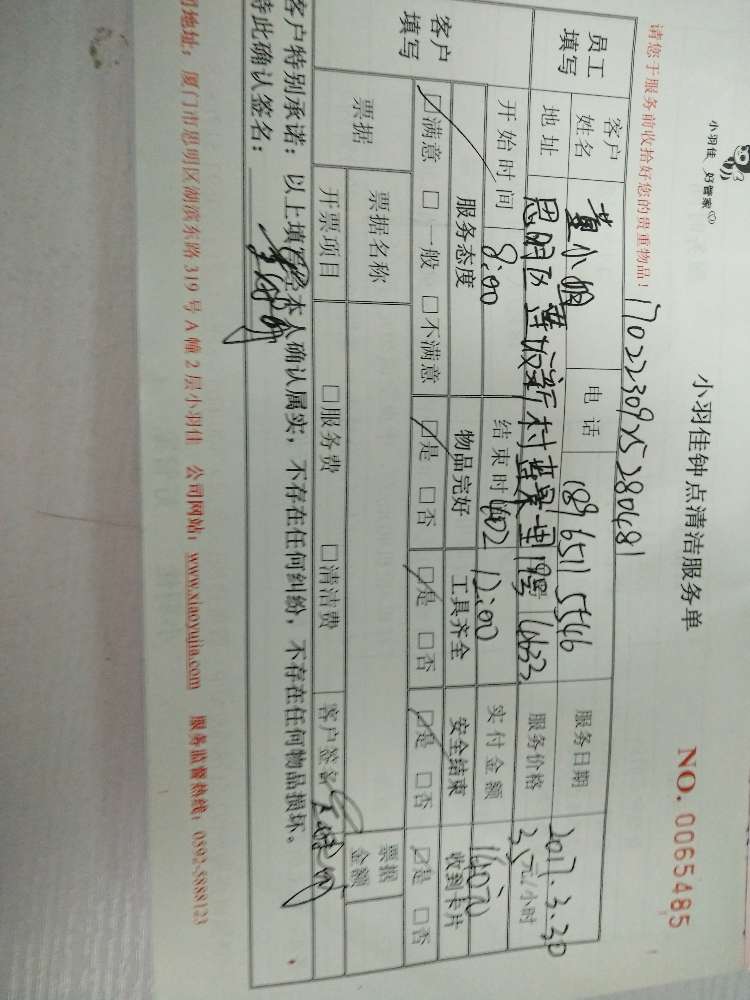 小羽佳 好管家
小羽佳钟点清洁服务单
NO. 0065485
请您于服务前收拾好您的贵重物品！
1702230925280481
员工填写 客户姓名 黄小姐 电话 18965115546 服务日期 2017.3.30
地址 思明区莲波新村 服务价格 35元/小时
开始时间 8:00 结束时 12:00 实付金额 140元
客户填写 服务态度 物品完好 工具齐全 安全结束 收到卡片
☑满意 □一般 □不满意 ☑是 □否 ☑是 □否 ☑是 □否 ☑是 □否
票据 票据名称 票据金额
开票项目 □服务费 □清洁费 客户签名
客户特别承诺：以上填写经本人确认属实，不存在任何纠纷，不存在任何物品损坏。
特此确认签名：
司地址：厦门市思明区湖滨东路319号A幢2层小羽佳 公司网站：www.xiaoyujia.com 服务监督热线：0592-5888123